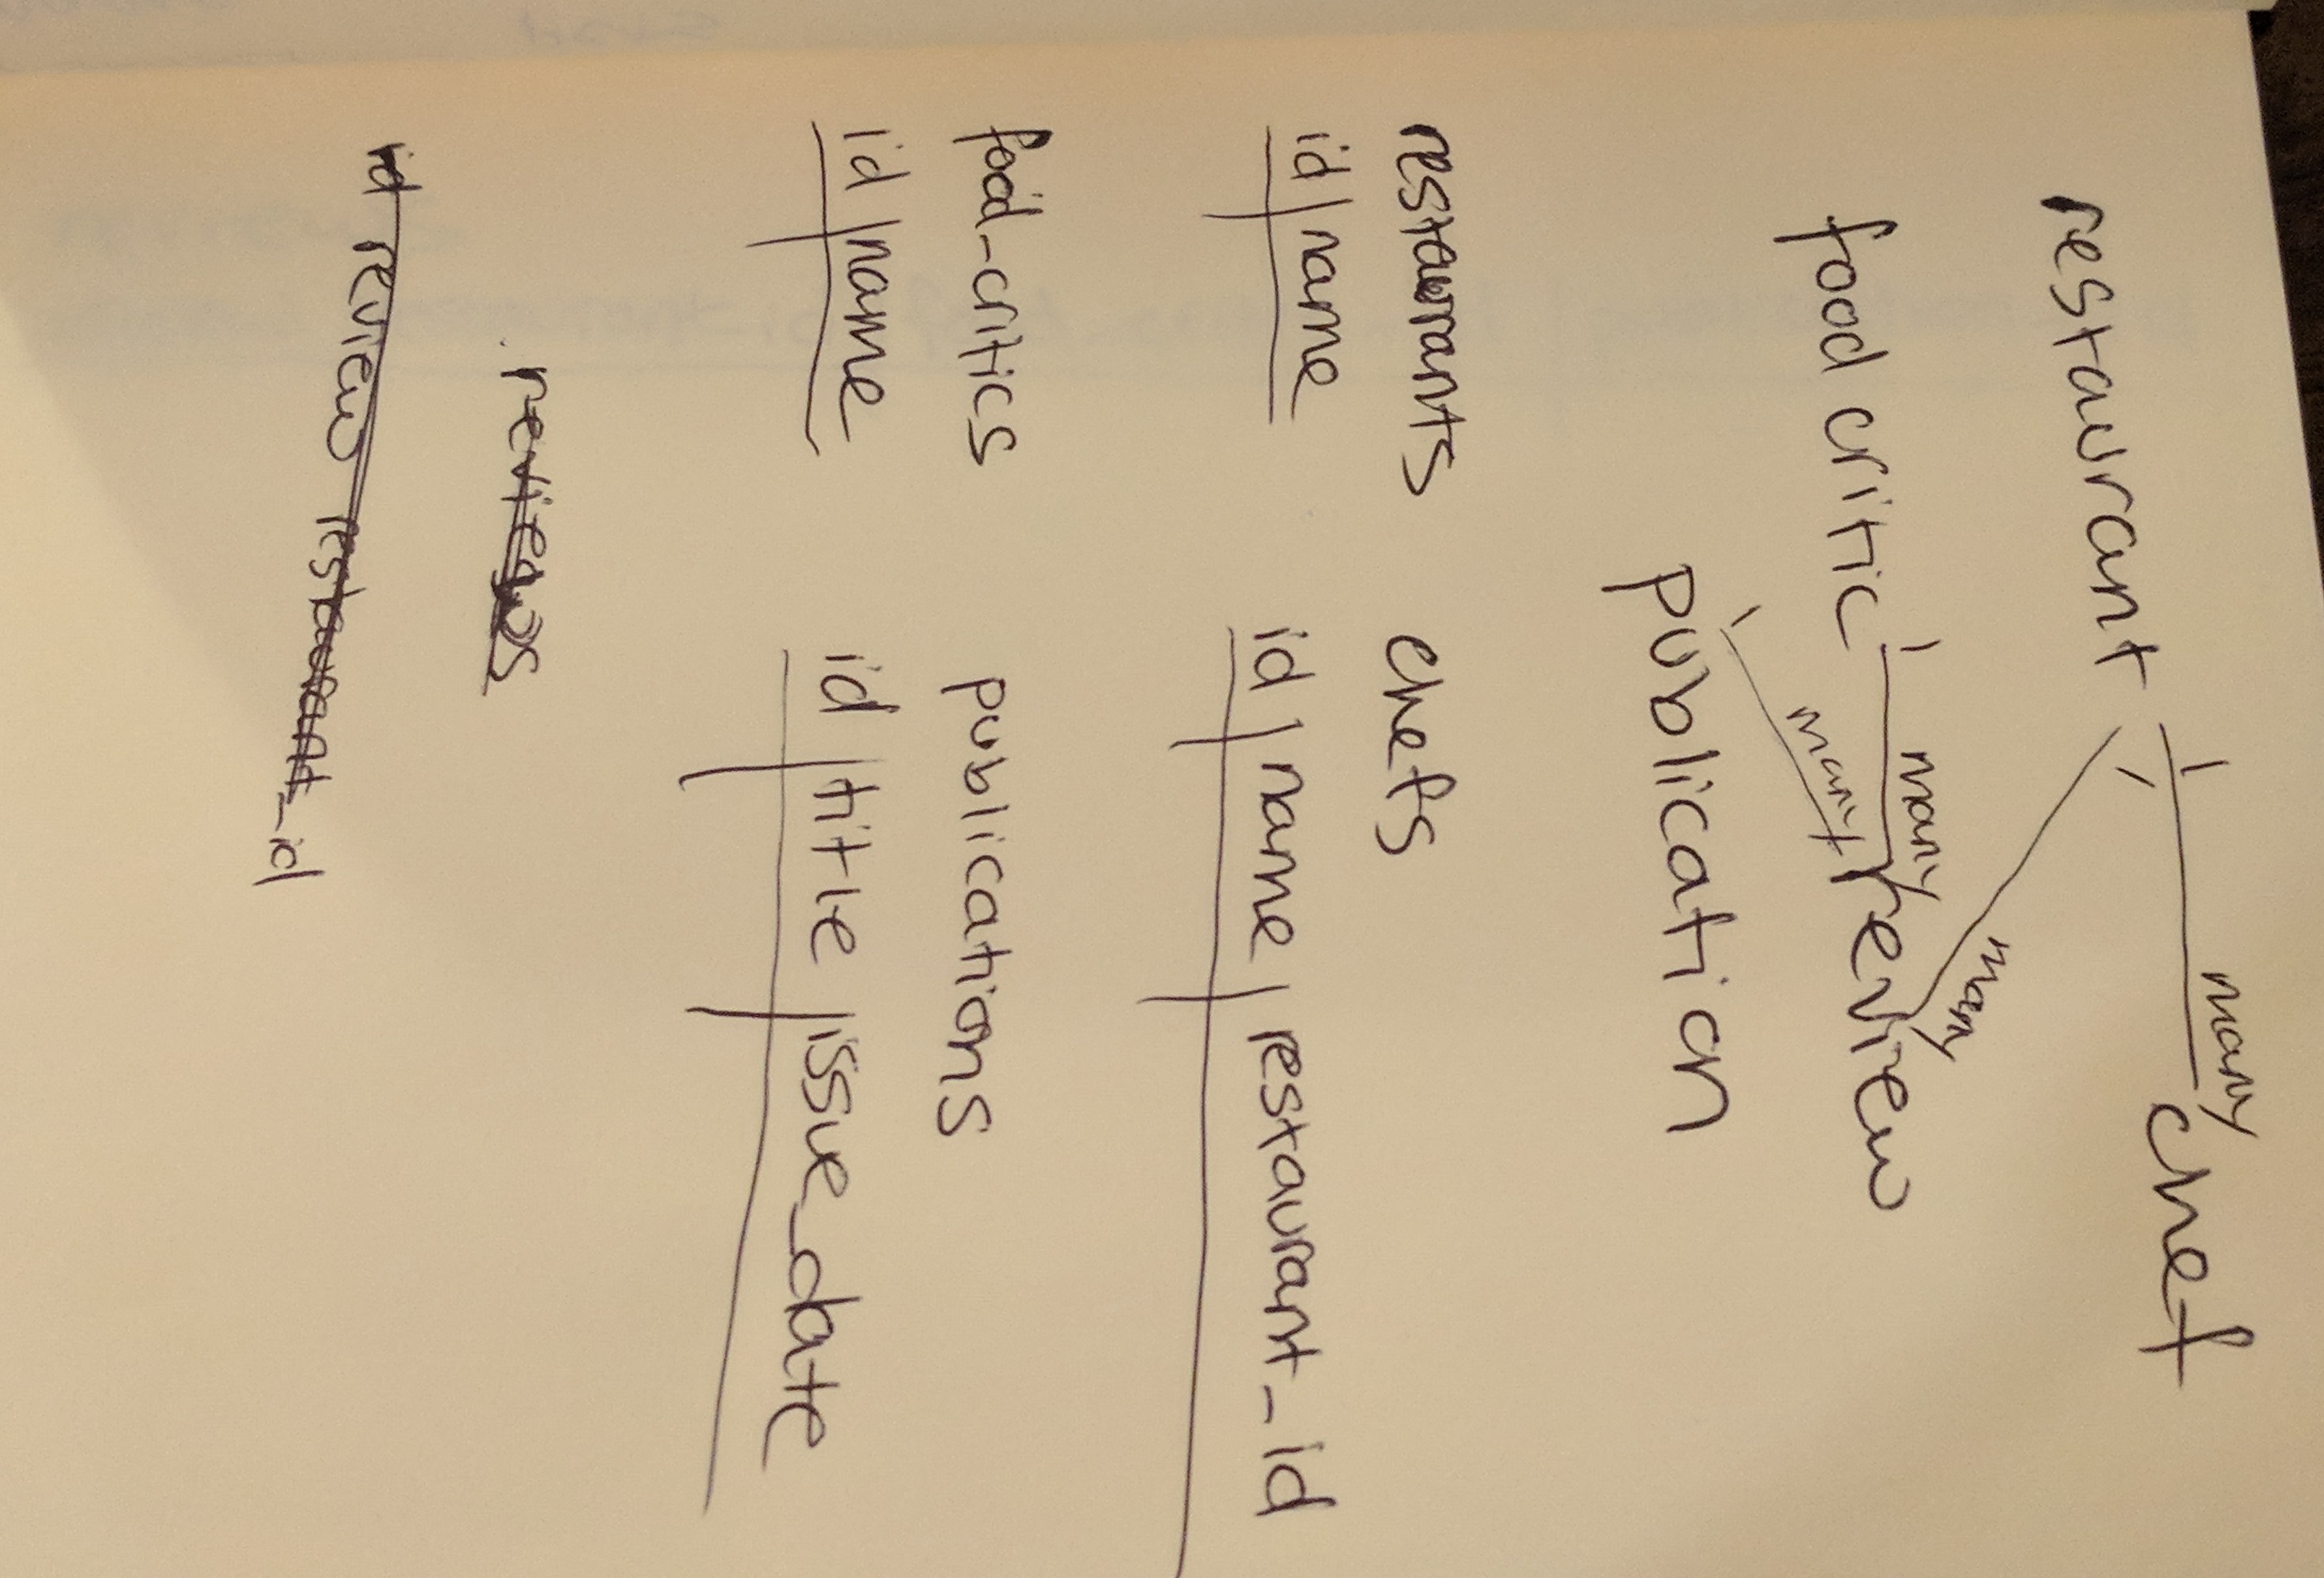 restaurant 1 many chef
1 many
food critic 1 many review
1 many
publication
restaurants chefs
id | name id | name | restaurant_id
food_critics publications
id | name id | title | issue_date
reviews
id review restaurant_id